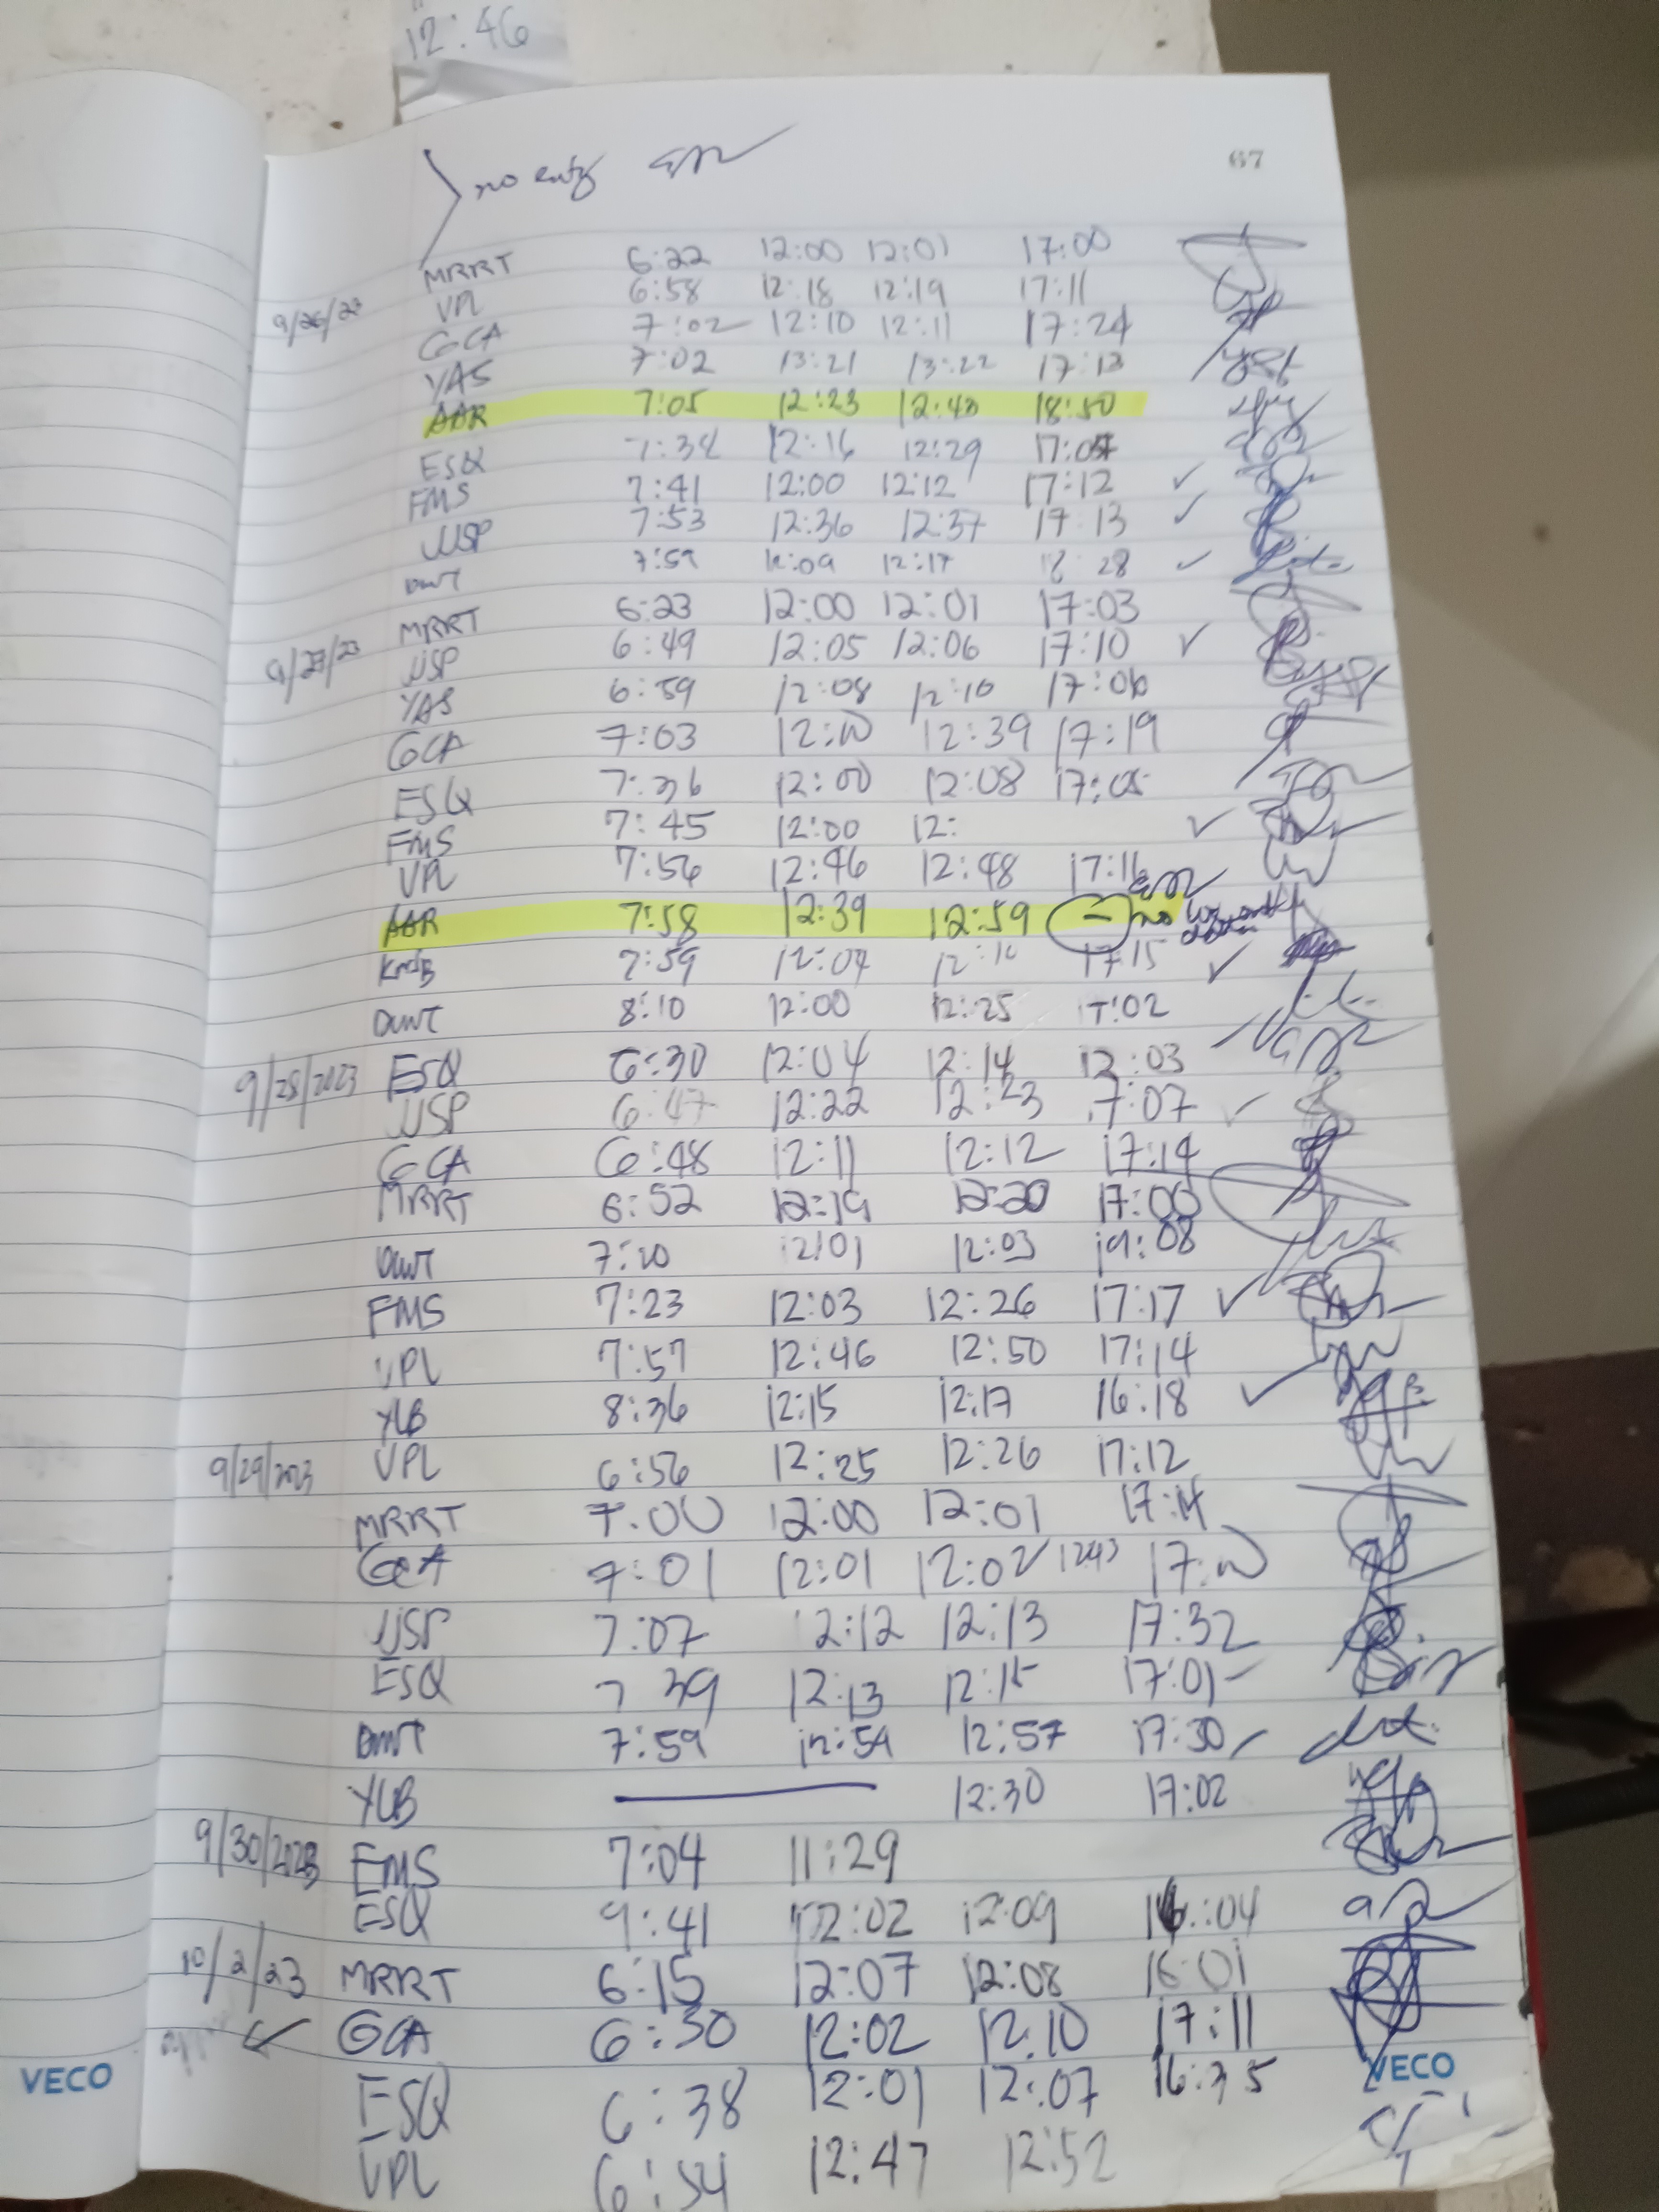 12:46
no entry
67
MRRT 6:22 12:00 12:01 17:00
9/26/23 VPL 6:58 12:18 12:19 17:11
GCA 7:02 12:10 12:11 17:24
YAS 7:02 13:21 13:22 17:13
AAR 7:05 12:23 12:43 18:50
ESQ 7:34 12:16 12:29 17:07
FMS 7:41 12:00 12:12 17:12 ✓
JJSP 7:53 12:36 12:37 17:13 ✓
DWT 7:59 12:09 12:17 28 ✓
MRRT 6:23 12:00 12:01 17:03
9/27/23 JJSP 6:49 12:05 12:06 17:10 ✓
YAS 6:59 12:08 12:10 17:06
GCA 7:03 12:10 12:39 17:19
ESQ 7:36 12:00 12:08 17:05
FMS 7:45 12:00 12: ✓
VPL 7:56 12:46 12:48 17:16
AAR 7:58 12:39 12:59 – no
KMB 7:59 12:04 12:10 17:15 ✓
DWT 8:10 12:00 12:25 17:02
9/28/2023 ESQ 6:30 12:04 12:14 12:03
JJSP 6:47 12:22 12:23 17:07 ✓
GCA 6:48 12:11 12:12 17:14
MRRT 6:52 12:19 12:20 17:00
DWT 7:10 12:01 12:03 19:08
FMS 7:23 12:03 12:26 17:17 ✓
VPL 7:57 12:46 12:50 17:14
YLB 8:36 12:15 12:17 16:18 ✓
9/29/2023 VPL 6:56 12:25 12:26 17:12
MRRT 7:00 12:00 12:01 17:14
GCA 7:01 12:01 12:02 1243 17:
JJSP 7:07 12:12 12:13 17:32
ESQ 7 39 12:13 12:15 17:01
DWT 7:59 12:54 12:57 17:30
YLB 12:30 17:02
9/30/2023 FMS 7:04 11:29
ESQ 9:41 12:02 12:09 16:04
10/2/23 MRRT 6:15 12:07 12:08 16:01
✓ GCA 6:30 12:02 12:10 17:11
VECO VECO
ESQ 6:38 12:01 12:07 16:35
VPL 6:54 12:47 12:52